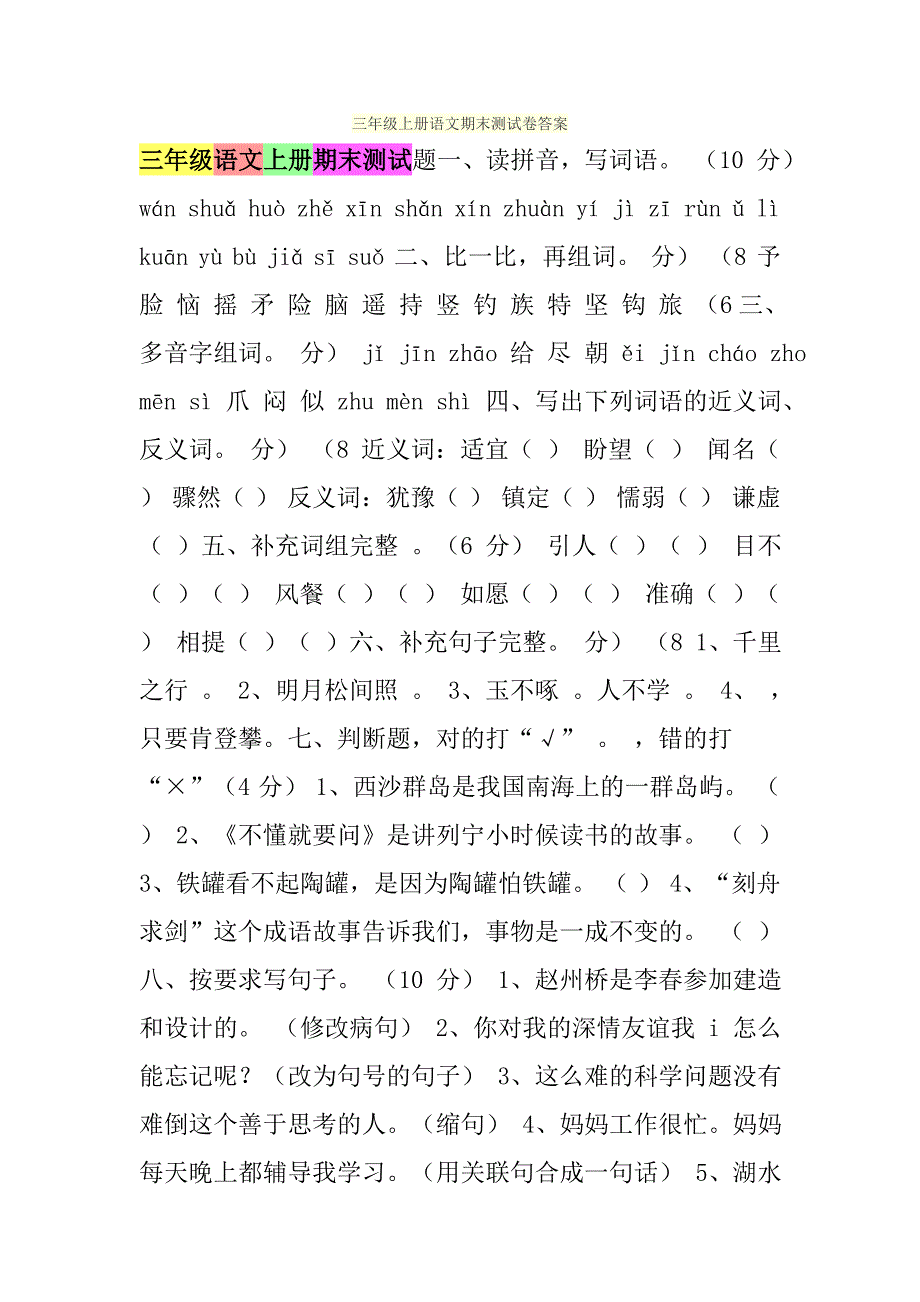 三年级上册语文期末测试卷答案
三年级语文上册期末测试题一、读拼音，写词语。 （10 分）
wán shuǎ huò zhě xīn shǎn xín zhuàn yí jì zī rùn ǔ lì
kuān yù bù jiǎ sī suǒ 二、比一比，再组词。 分） （8 予
脸 恼 摇 矛 险 脑 遥 持 竖 钓 族 特 坚 钩 旅 （6 三、
多音字组词。 分） jǐ jīn zhāo 给 尽 朝 ěi jǐn cháo zho
mēn sì 爪 闷 似 zhu mèn shì 四、写出下列词语的近义词、
反义词。 分） （8 近义词：适宜（ ） 盼望（ ） 闻名（
） 骤然（ ） 反义词：犹豫（ ） 镇定（ ） 懦弱（ ） 谦虚
（ ）五、补充词组完整 。（6 分） 引人（ ）（ ） 目不
（ ）（ ） 风餐（ ）（ ） 如愿（ ）（ ） 准确（ ）（
） 相提（ ）（ ）六、补充句子完整。 分） （8 1、千里
之行 。 2、明月松间照 。 3、玉不啄 。人不学 。 4、 ，
只要肯登攀。七、判断题，对的打“√” 。 ，错的打
“×”（4 分） 1、西沙群岛是我国南海上的一群岛屿。 （
） 2、《不懂就要问》是讲列宁小时候读书的故事。 （ ）
3、铁罐看不起陶罐，是因为陶罐怕铁罐。 （ ） 4、“刻舟
求剑”这个成语故事告诉我们，事物是一成不变的。 （ ）
八、按要求写句子。 （10 分） 1、赵州桥是李春参加建造
和设计的。 （修改病句） 2、你对我的深情友谊我 i 怎么
能忘记呢？（改为句号的句子） 3、这么难的科学问题没有
难倒这个善于思考的人。（缩句） 4、妈妈工作很忙。妈妈
每天晚上都辅导我学习。（用关联句合成一句话） 5、湖水